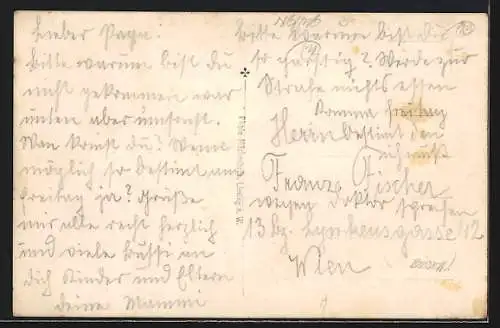 Lieber Papa!
Bitte warum bist du
nicht gekommen war
unten aber umsonst.
Wan komst du? Wenn
möglich so bestimt am
freitag ja? Grüße
mir alle recht herzlich
und viele bussi an
dich Kinder und Eltern
deine Mammi
Bitte warum bist du
so garstig? Werde zur
Strafe nichts essen
komme freitag
Herrn bestimt den
Franz Fischer
wegen Doktor sprechen
13 bz. Lynkeusgasse 12
Wien